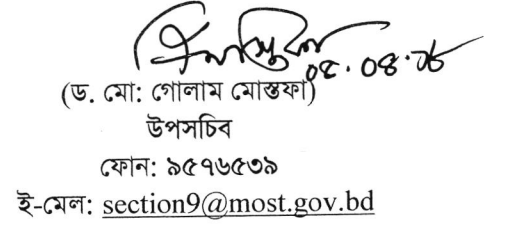 ০৫.০৪.১৮
(ড. মো: গোলাম মোস্তফা)
উপসচিব
ফোন: ৯৫৭৬৫৩৯
ই-মেল: section9@most.gov.bd